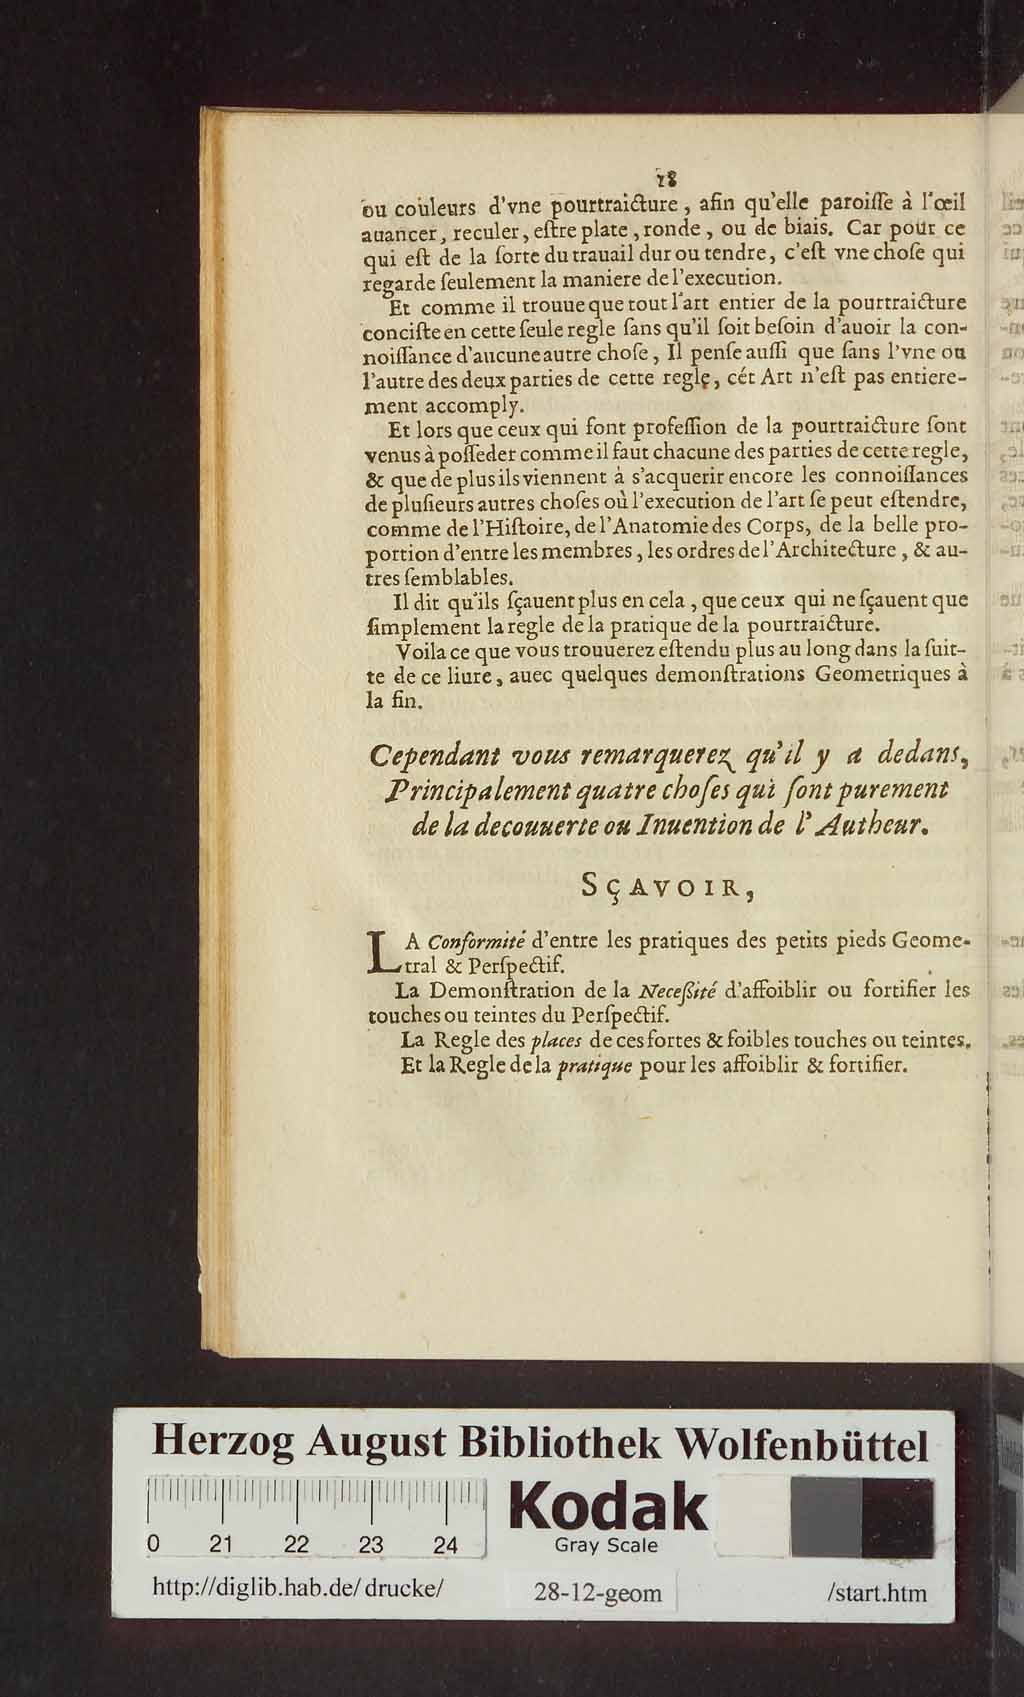 18
ou couleurs d'vne pourtraicture, afin qu'elle paroiſſe à l'œil
auancer, reculer, eſtre plate, ronde, ou de biais. Car pour ce
qui eſt de la ſorte du trauail dur ou tendre, c'eſt vne choſe qui
regarde ſeulement la maniere de l'execution.
Et comme il trouue que tout l'art entier de la pourtraicture
conciſte en cette ſeule regle ſans qu'il ſoit beſoin d'auoir la con-
noiſſance d'aucune autre choſe, Il penſe auſſi que ſans l'vne ou
l'autre des deux parties de cette regle, cét Art n'eſt pas entiere-
ment accomply.
Et lors que ceux qui font profeſſion de la pourtraicture ſont
venus à poſſeder comme il faut chacune des parties de cette regle,
& que de plus ils viennent à s'acquerir encore les connoiſſances
de pluſieurs autres choſes où l'execution de l'art ſe peut eſtendre,
comme de l'Hiſtoire, de l'Anatomie des Corps, de la belle pro-
portion d'entre les membres, les ordres de l'Architecture, & au-
tres ſemblables.
Il dit qu'ils ſçauent plus en cela, que ceux qui ne ſçauent que
ſimplement la regle de la pratique de la pourtraicture.
Voila ce que vous trouuerez eſtendu plus au long dans la ſuit-
te de ce liure, auec quelques demonſtrations Geometriques à
la fin.
Cependant vous remarquerez qu'il y a dedans,
Principalement quatre choſes qui ſont purement
de la decouuerte ou Inuention de l'Autheur.
SÇAVOIR,
LA Conformité d'entre les pratiques des petits pieds Geome-
tral & Perſpectif.
La Demonſtration de la Neceßité d'affoiblir ou fortifier les
touches ou teintes du Perſpectif.
La Regle des places de ces fortes & foibles touches ou teintes.
Et la Regle de la pratique pour les affoiblir & fortifier.
Herzog August Bibliothek Wolfenbüttel
0 21 22 23 24
Kodak
Gray Scale
http://diglib.hab.de/drucke/ 28-12-geom /start.htm